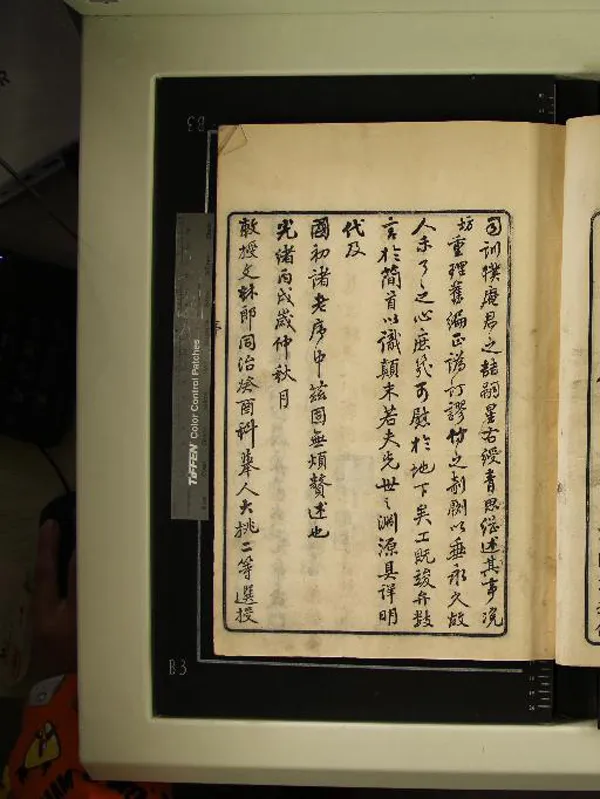 司訓樸庵君之喆嗣星右綬青思繼述其事浼
坊重理舊編正譌訂謬付之剞劂以垂永久故
人未了之心庶幾可慰於地下矣工既竣弁数
言於簡首以識顛末若夫先世之淵源具詳明
代及
國初諸老序中茲固無煩贅述也
光緒丙戌歲仲秋月
敕授文林郎同治癸酉科舉人大挑二等選授
TIFFEN Color Control Patches
B3
B3